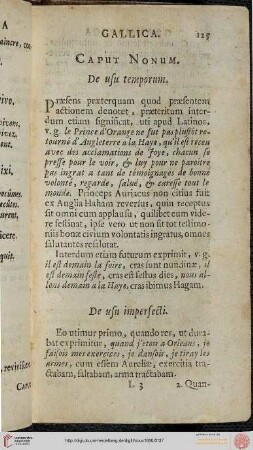 GALLICA. 125
CAPUT NONUM.
De usu temporum.
Præsens præterquam quod præsentem
actionem denotet, præteritum inter-
dum etiam significat, uti apud Latinos,
v. g. le Prince d'Orange ne fut pas plustôt re-
tourné d'Angleterre a la Haye, qu'il est receu
avec des acclamations de Joye, chacun se
presse pour le voir, & luy pour ne paroitre
pas ingrat a tant de témoignages de bonne
volonté, regarde, salue, & caresse tout le
monde. Princeps Auriacus non citius fuit
ex Anglia Haham reversus, quin receptus
sit omni cum applausu, quilibet eum vide-
re festinat, ipse vero ut non sit tot testimo-
niis bonæ civium voluntatis ingratus, omnes
salutantes resalutat.
Interdum etiam futurum exprimit, v. g.
il est demain la foire, cras sunt nundinæ, il
est demain feste, cras est festus dies, nous al-
lons demain a la Haye, cras ibimus Hagam.
De usu imperfecti.
Eo utimur primo, quando res, ut dura-
bat exprimitur, quand j'etois a Orleans, je
faisois mes exercices, je dansois, je tiray les
armes, cum essem Aureliæ, exercitia trac-
tabam, saltabam, arma tractabam.
L 3 2. Quan-